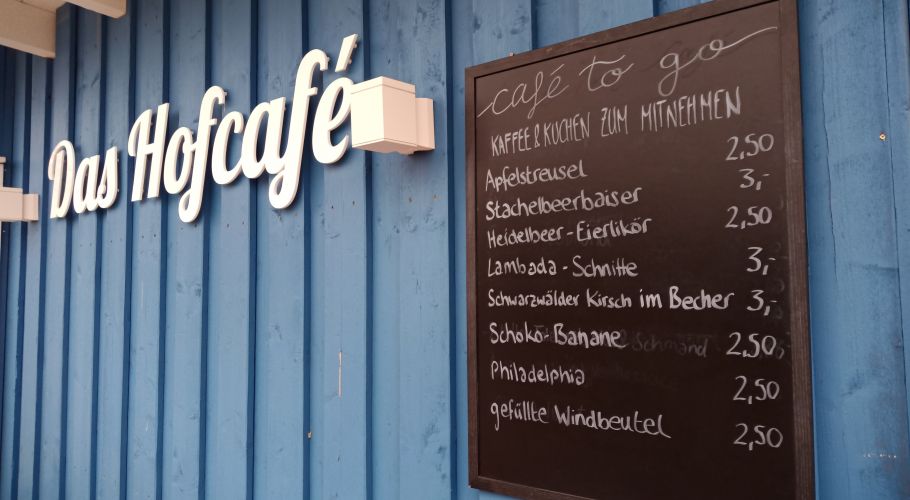 Das Hofcafé
café to go
KAFFEE & KUCHEN ZUM MITNEHMEN
Apfelstreusel 2,50
Stachelbeerbaiser 3,-
Heidelbeer-Eierlikör 2,50
Lambada-Schnitte 3,-
Schwarzwälder Kirsch im Becher 3,-
Schoko-Banane 2,50
Philadelphia 2,50
gefüllte Windbeutel 2,50